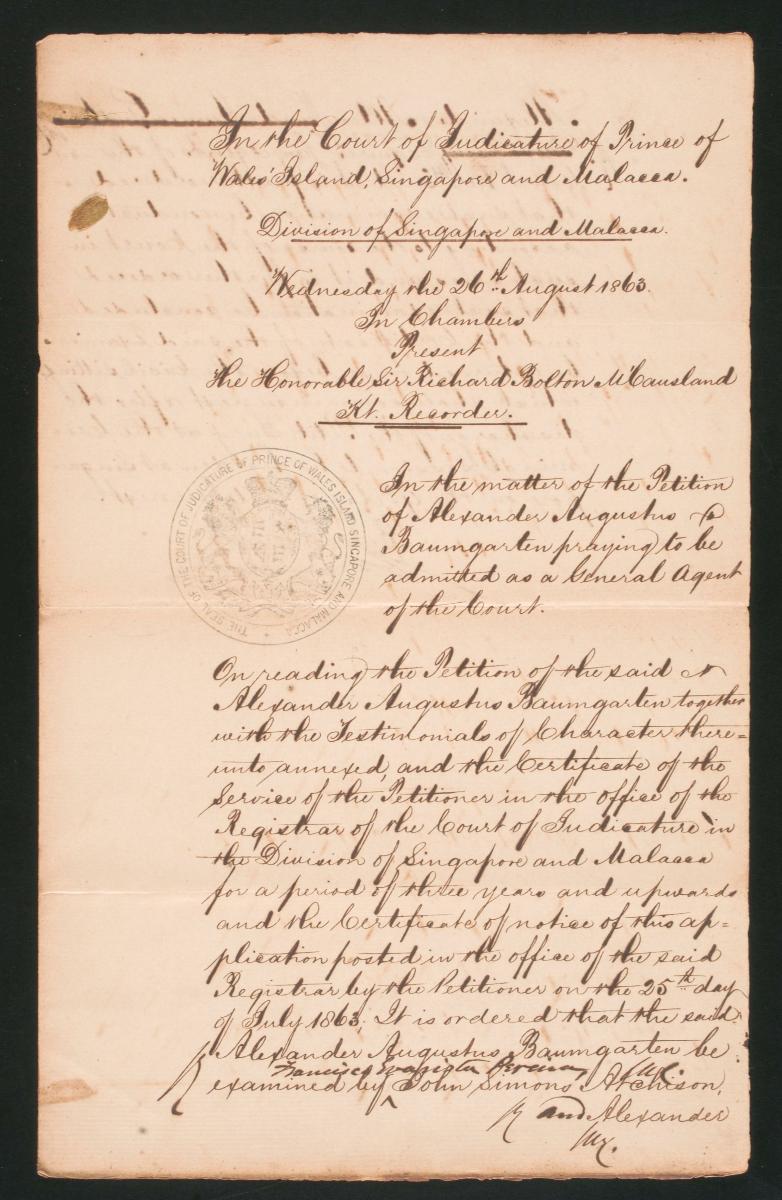 In the Court of Judicature of Prince of
Wales' Island, Singapore and Malacca.
Division of Singapore and Malacca.
Wednesday the 26th August 1863.
In Chambers
Present
The Honorable Sir Richard Bolton M'Causland
Kt. Recorder.
THE SEAL OF THE COURT OF JUDICATURE OF PRINCE OF WALES ISLAND SINGAPORE AND MALACCA
In the matter of the Petition
of Alexander Augustus
Baumgarten praying to be
admitted as a General Agent
of the Court.
On reading the Petition of the said
Alexander Augustus Baumgarten together
with the Testimonials of Character there=
unto annexed, and the Certificate of the
Service of the Petitioner in the office of the
Registrar of the Court of Judicature in
the Division of Singapore and Malacca
for a period of three years and upwards
and the Certificate of notice of this ap=
plication posted in the office of the said
Registrar by the Petitioner on the 25th day
of July 1863; It is ordered that the said
Alexander Augustus Baumgarten be
Francisco Evaristo Pereira
examined by ^ John Simons Atchison,
and Alexander